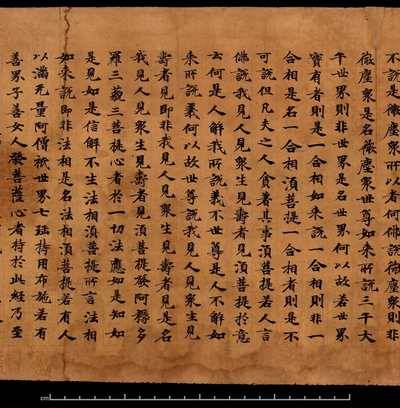 不說是微塵眾所以者何佛說微塵眾則非
微塵眾是名微塵眾世尊如來所說三千大
千世界則非世界是名世界何以故若世界
實有者則是一合相如來說一合相則非一
合相是名一合相須菩提一合相者則是不
可說但凡夫之人貪著其事須菩提若人言
佛說我見人見眾生見壽者見須菩提於意
云何是人解我所說義不世尊是人不解如
來所說義何以故世尊說我見人見眾生見
壽者見即非我見人見眾生見壽者見是名
我見人見眾生見壽者見須菩提發阿耨多
羅三藐三菩提心者於一切法應如是知如
是見如是信解不生法相須菩提所言法相
如來說即非法相是名法相須菩提若有人
以滿无量阿僧祇世界七珤持用布施若有
善男子善女人發菩薩心者持於此經乃至
cm